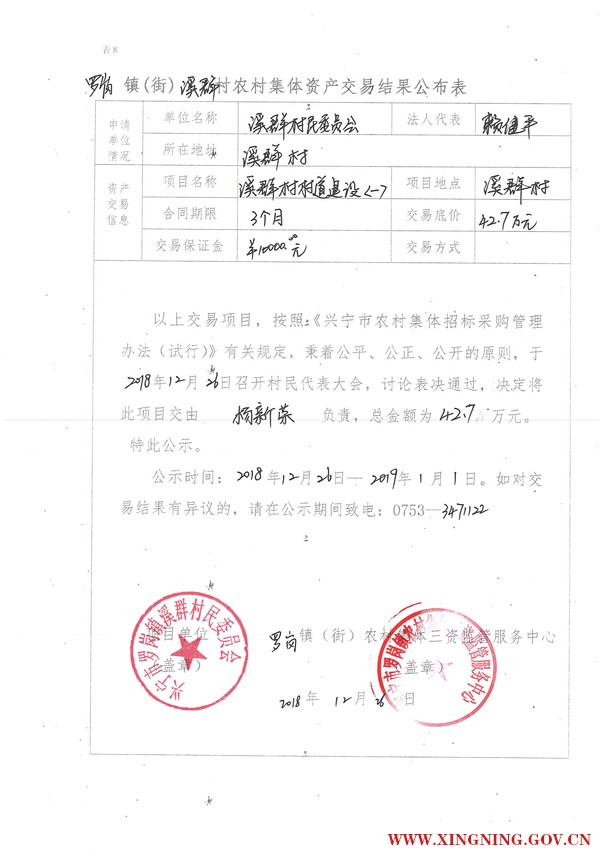 表8
罗岗镇(街)溪群村农村集体资产交易结果公布表
申请单位情况 单位名称 溪群村民委员会 法人代表 赖佳平
所在地址 溪群村
资产交易信息 项目名称 溪群村村道建设<一> 项目地点 溪群村
合同期限 3个月 交易底价 42.7万元
交易保证金 ¥10000.00元 交易方式
以上交易项目，按照《兴宁市农村集体招标采购管理
办法（试行）》有关规定，秉着公平、公正、公开的原则，于
2018年12月26日召开村民代表大会，讨论表决通过，决定将
此项目交由 杨新荣 负责，总金额为42.7万元。
特此公示。
公示时间：2018年12月26日—2019年1月1日。如对交
易结果有异议的，请在公示期间致电：0753—3471122
项目单位 罗岗镇（街）农村集体三资监管服务中心
（盖章） （盖章）
2018年12月26日
兴宁市罗岗镇溪群村民委员会
兴宁市罗岗镇农村集体三资监管服务中心
WWW.XINGNING.GOV.CN